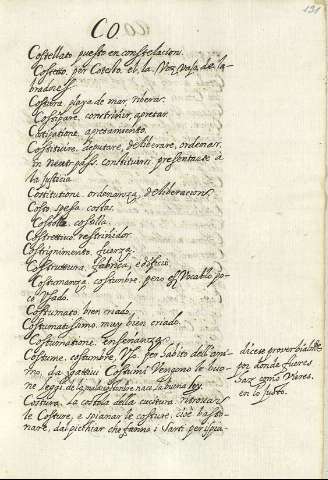 131
CO
Costellato puesto en constelacion.
Costesso, por Cotello, es la Voz Vasa, de la-
bradores.
Costiera, playa de mar, riberas.
Costipare, constriñir, apretar.
Costipatione, apretamiento.
Costituire, deputare, deliberare, ordenar,
in neutr. pass. constituirsi presentarse a
la Justicia
Costitutione, ordenanza, deliberacion.
Costo, spesa, costa.
Costolla, costilla.
Costrettivo, restriñidor.
Costrignimento, fuerza.
Costruttura, fabrica, edificio.
Costumanza, costumbre, pero es Vocablo po-
co Vsado.
Costumato, bien criado.
Costumatissimo, muy bien criado.
Costumatione, enseñanza.
Costume, costumbre, Vso, por habito dell'ani-
mo, da gattiui Costumi Vengono le buo-
ne leggi, de la mala costumbre nace la buena ley.
Costura, la costola della cucitura, ritrouare
le Costure, e spianar le costure, cioè basto-
nare, dal picchiar che fanno i Sarti per ispia-
dicese proverbialmte
por donde fueres
haz como Vieres,
en lo Justo.